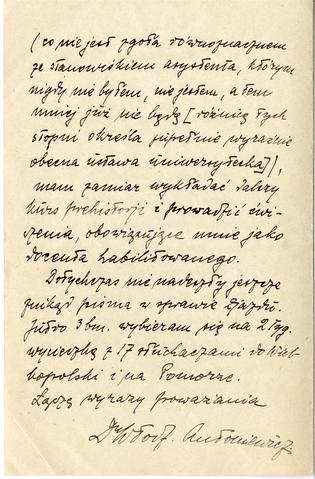 (co nie jest zgoła równoznacznem
ze stanowiskiem asystenta, którym
nigdy nie byłem, nie jestem, a tem
mniej już nie będę [różnicę tych
stopni określa zupełnie wyraźnie
obecna ustawa uniwersytecka]),
mam zamiar wykładać dalszy
kurs prehistorji i prowadzić ćwi-
czenia, obowiązujące mnie jako
docenta habilitowanego.
Dotychczas nie nadeszły jeszcze
znikąd pisma w sprawie Zjazdu.
Jutro 3 bm. wybieram się na 2 tyg.
wycieczkę z 17 słuchaczami do Wiel-
kopolski i na Pomorze.
Łączę wyrazy poważania
Dr Włodz. Antoniewicz.